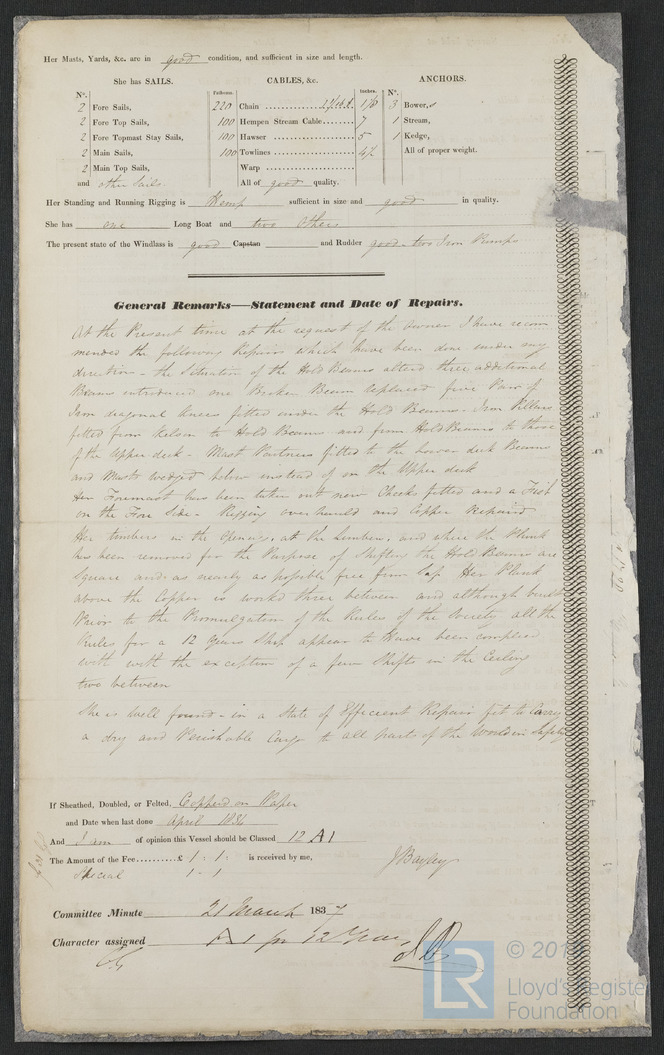 Her Masts, Yards, &c. are in good condition, and sufficient in size and length.
She has SAILS. CABLES, &c. ANCHORS.
No. Fathoms. Inches. No.
2 Fore Sails, 220 Chain 1 1/8 3 Bowers
2 Fore Top Sails, 100 Hempen Stream Cable 7 1 Stream,
2 Fore Topmast Stay Sails, 100 Hawser 5 1 Kedge,
2 Main Sails, 100 Towlines 4½ All of proper weight.
2 Main Top Sails, Warp
and other sails All of good quality.
Her Standing and Running Rigging is Hemp sufficient in size and good in quality.
She has one Long Boat and two others
The present state of the Windlass is good Capstan and Rudder good - two Iron Pumps
General Remarks—Statement and Date of Repairs.
At the Present time at the request of the owner I have recom
mended the following Repairs which have been done under my
direction - the Situation of the Hold Beams altered three additional
Beams introduced one Broken Beam replaced five Pair of
Iron diagonal knees fitted under the Hold Beams - Iron Pillars
fitted from Kelson to Hold Beams and from Hold Beams to those
of the Upper deck - Mast Partners fitted to the lower deck Beams
and Masts wedged below instead of on the Upper deck
Her Foremast has been taken out new Cheeks fitted and a Fish
on the Fore Side - Rigging overhauld and Copper Repaired
Her timbers in the openings, at the Limbers, and where the Plank
has been removed for the Purpose of Shifting the Hold Beams are
Square and as nearly as possible free from Sap Her Plank
above the Copper is worked three between and although built
Prior to the Promulgation of the Rules of the Society all the
Rules for a 12 Years Ship appear to have been complied
with with the exception of a few Shifts in the Ceiling
two between
She is well found - in a State of Efficient Repair fit to Carry
a dry and Perishable Cargo to all parts of the World in Safety
If Sheathed, Doubled, or Felted, Copperd on Paper
and Date when last done April 1836
And I am of opinion this Vessel should be Classed 12 A1
The Amount of the Fee £ 1 : 1 : is received by me,
Special 1 - 1 J Bayley
Committee Minute 21 March 1837
Character assigned A 1 for 12 Years
© 201
LR Lloyd's Registe
Foundation